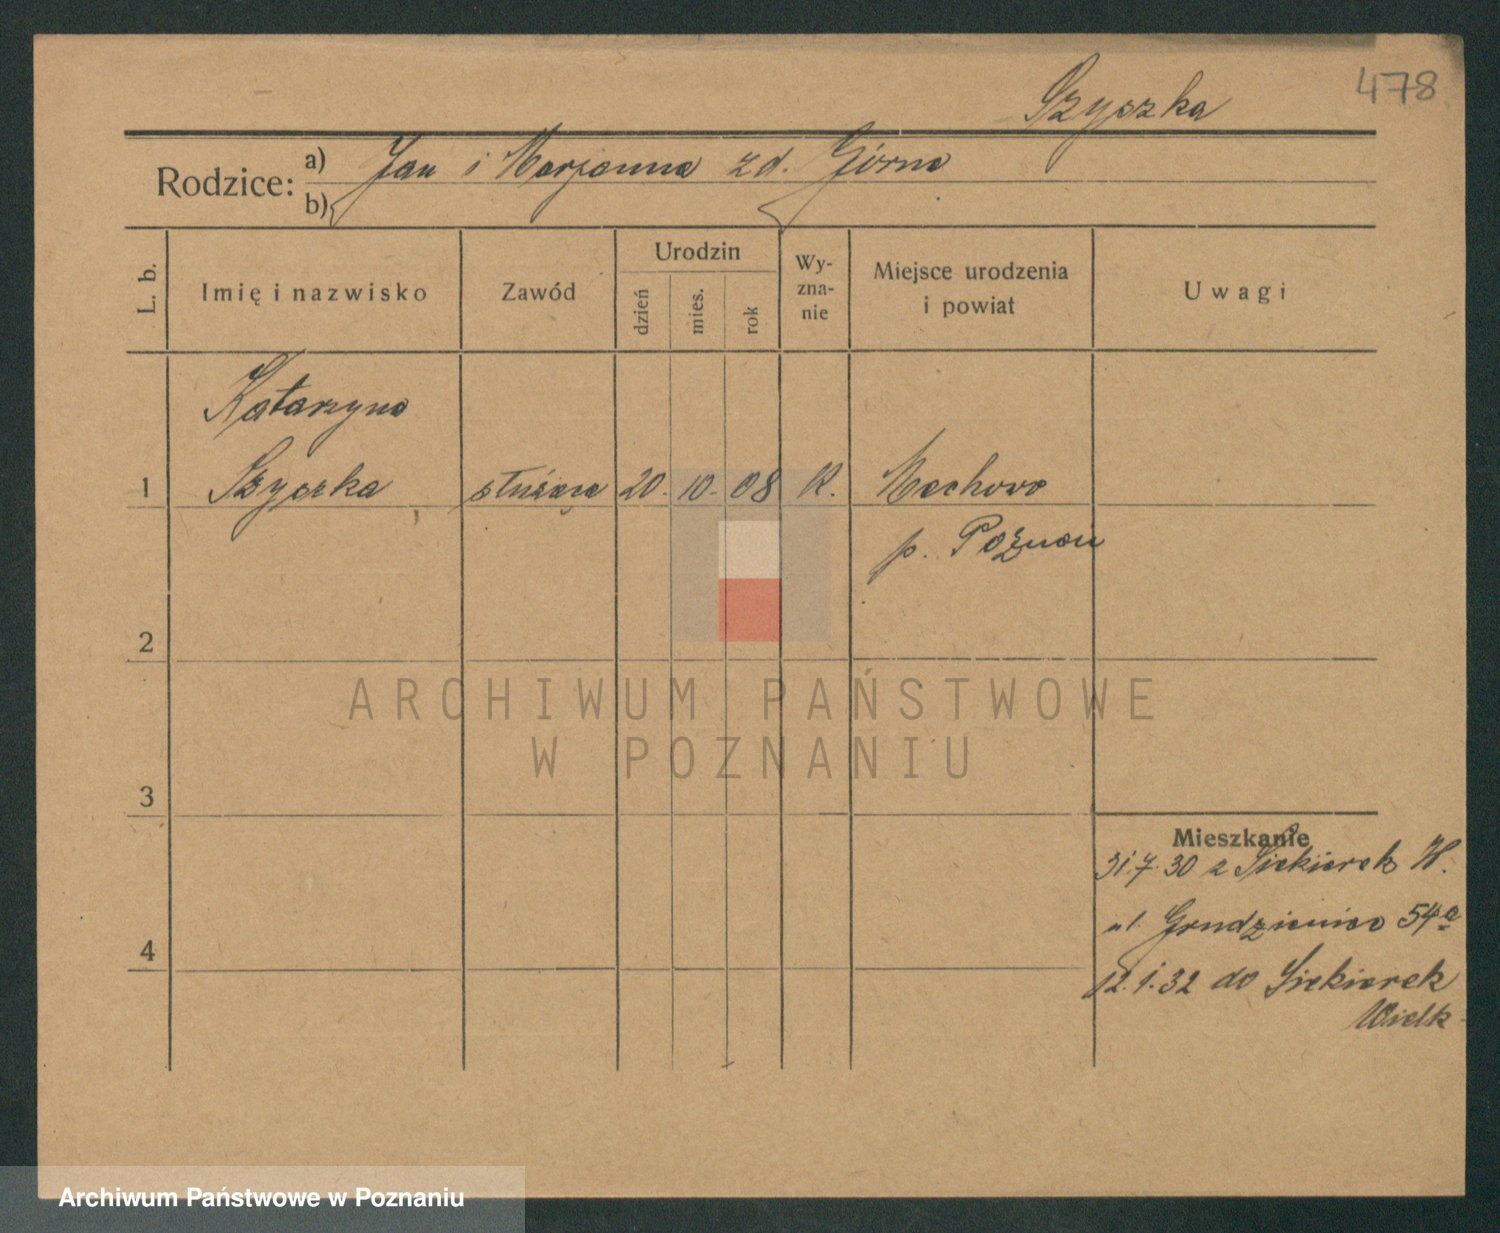 478
Szyczka
Rodzice: a) Jan i Marjanna zd. Górna
b)
L. b.
Imię i nazwisko
Zawód
Urodzin
dzień
mies.
rok
Wy-
zna-
nie
Miejsce urodzenia
i powiat
Uwagi
Katarzyna
1 Szyczka służąca 20. 10. 08 R. Mechowo
p. Poznań
2
3
4
Mieszkanie
31.7.30 z Siekierek W.
ul. Grudzieniec 54a
12.1.32 do Siekierek
Wielk
ARCHIWUM PAŃSTWOWE
W POZNANIU
Archiwum Państwowe w Poznaniu